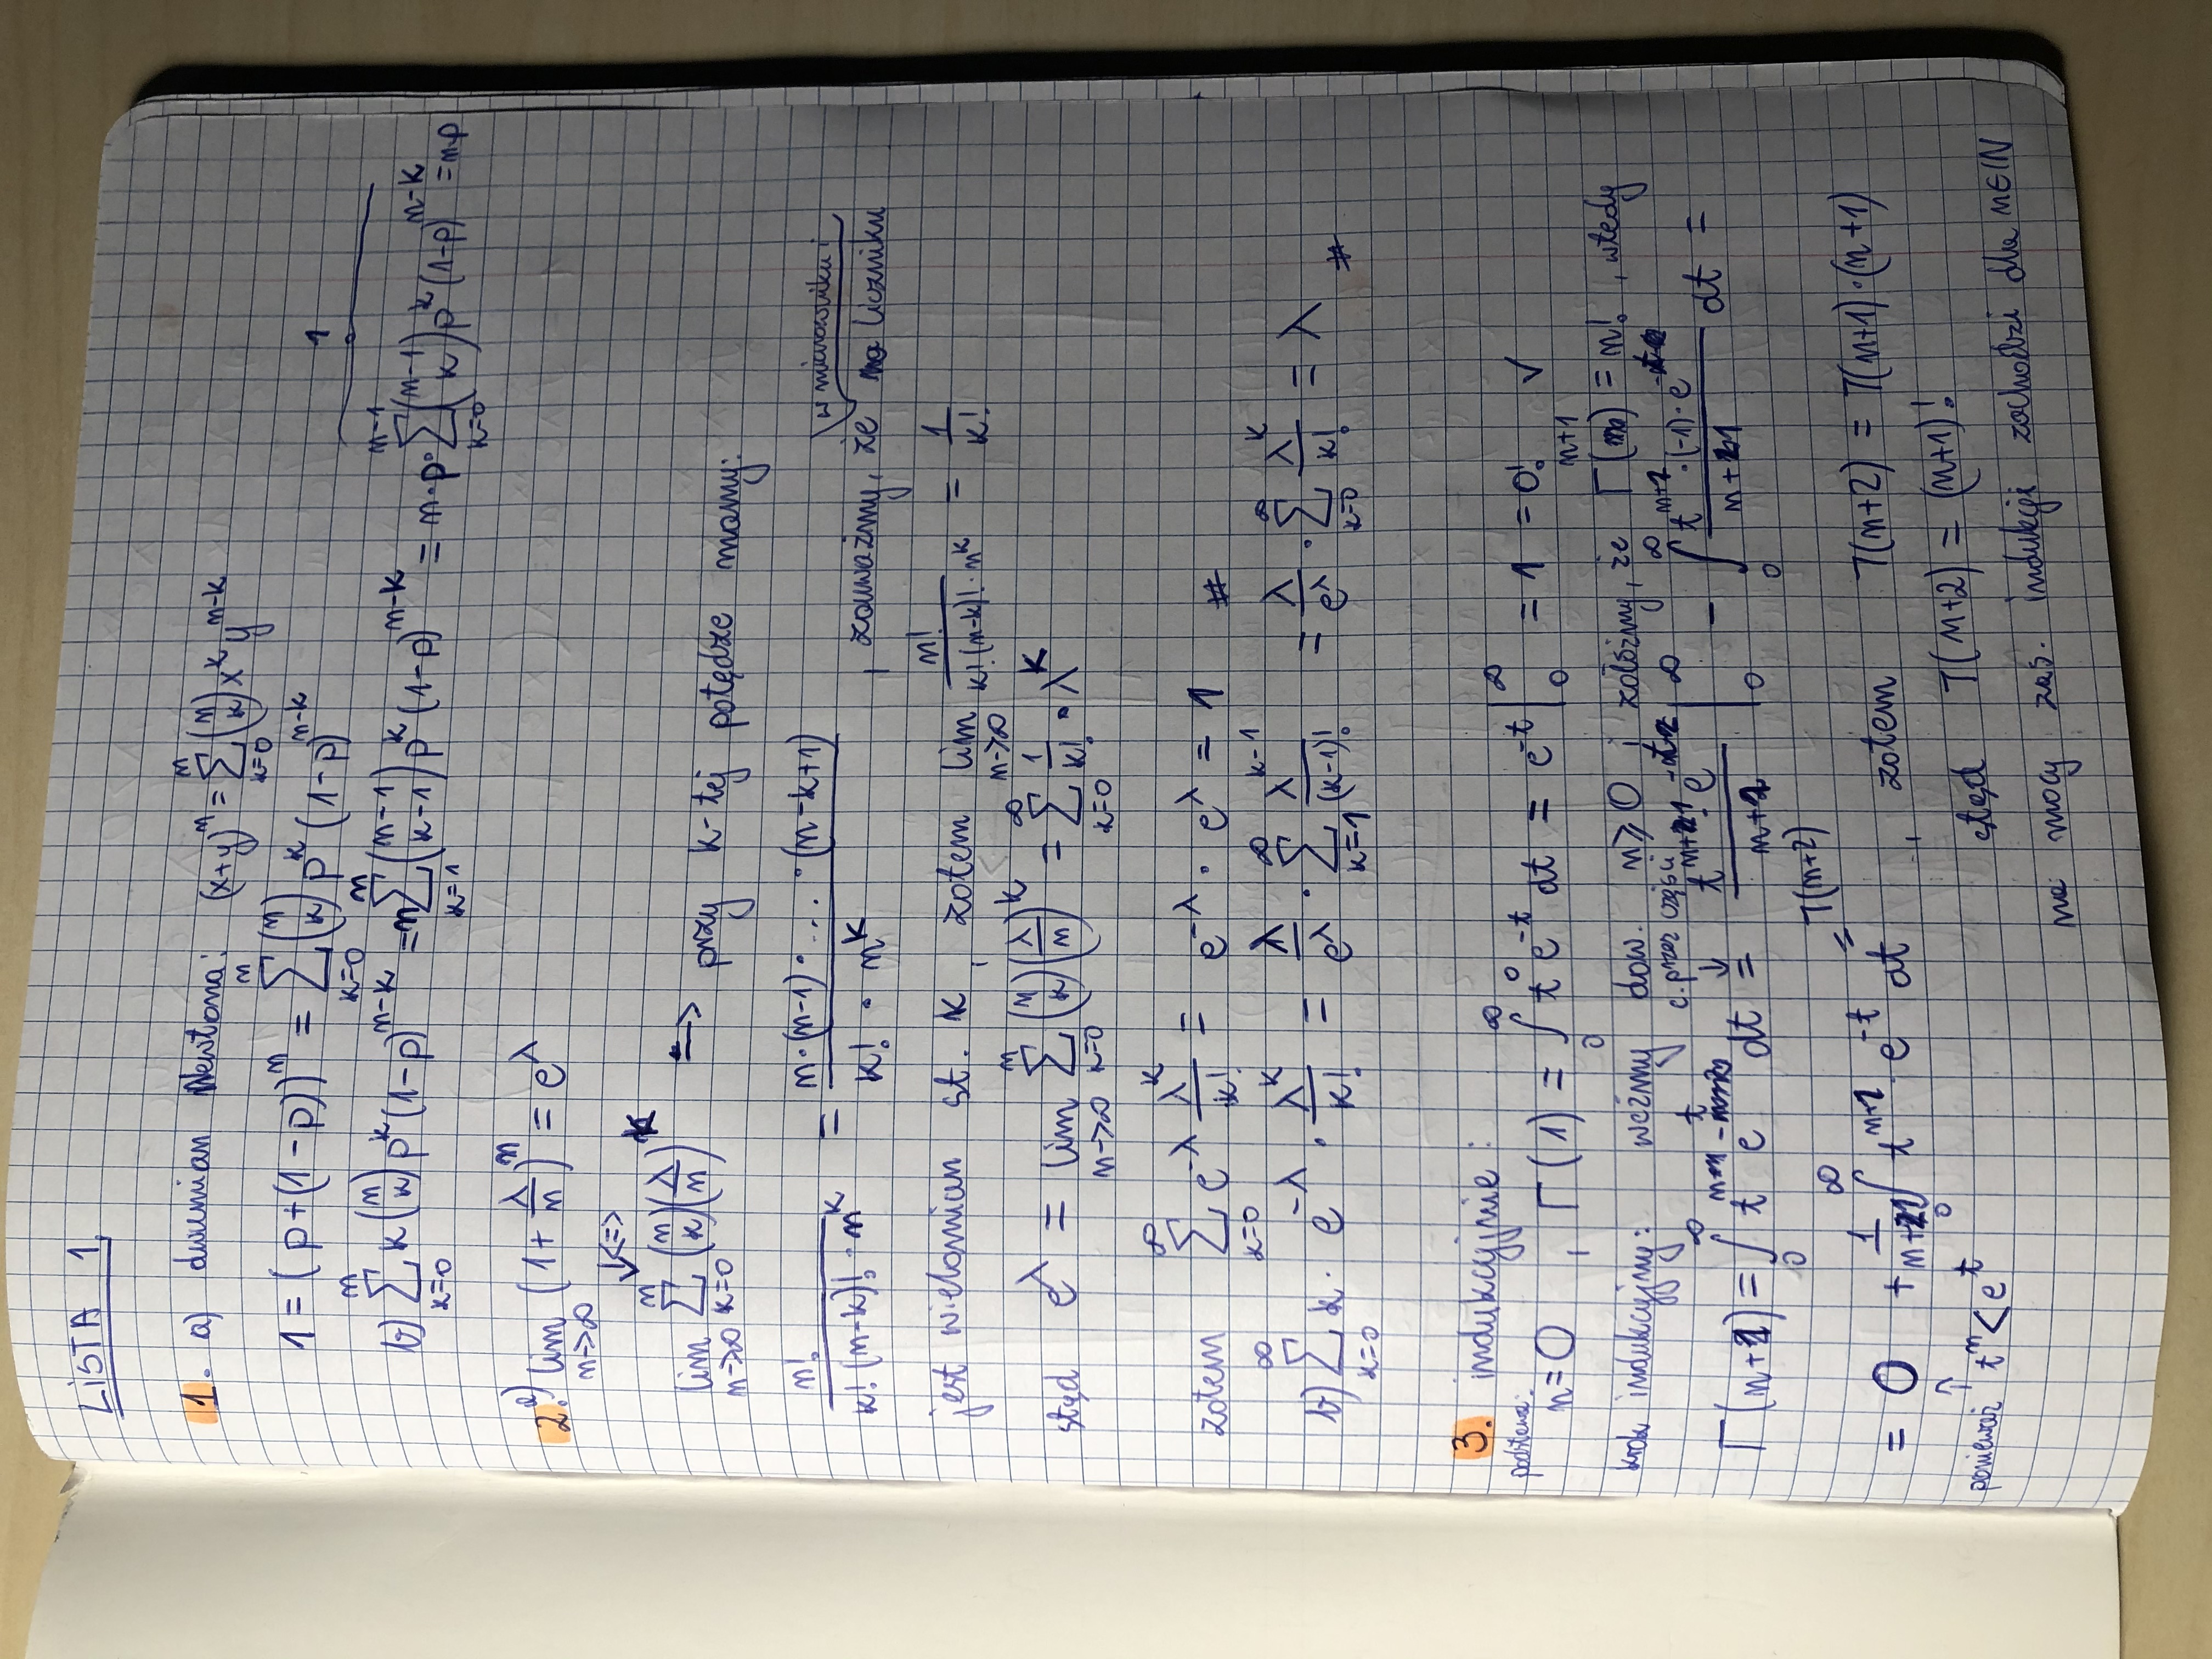 LISTA 1
1. a) dwumian Newtona: (x+y)^n = ∑_{k=0}^{n} (n k) x^k y^{n-k}
1 = (p+(1-p))^n = ∑_{k=0}^{n} (n k) p^k (1-p)^{n-k}
1
b) ∑_{k=0}^{n} k (n k) p^k (1-p)^{n-k} = n ∑_{k=1}^{n} (n-1 k-1) p^k (1-p)^{n-k} = n·p· ∑_{k=0}^{n-1} (n-1 k) p^k (1-p)^{n-k} = n·p
2. a) lim_{n->∞} (1 + λ/n)^n = e^λ
↓ <=>
lim_{n->∞} ∑_{k=0}^{n} (n k) (λ/n)^k => przy k-tej potędze mamy:
n!/(k!(n-k)!·n^k) = n·(n-1)·...·(n-k+1)/(k!·n^k) , zauważmy, że w mianowniku i liczniku
jest wielomian st. k, zatem lim_{n->∞} n!/(k!(n-k)!·n^k) = 1/k!
stąd e^λ = lim_{n->∞} ∑_{k=0}^{n} (n k) (λ/n)^k = ∑_{k=0}^{∞} 1/k! · λ^k
zatem ∑_{k=0}^{∞} e^{-λ} λ^k/k! = e^{-λ} · e^λ = 1 #
b) ∑_{k=0}^{∞} k · e^{-λ} · λ^k/k! = λ/e^λ · ∑_{k=1}^{∞} λ^{k-1}/(k-1)! = λ/e^λ · ∑_{k=0}^{∞} λ^k/k! = λ #
3. indukcyjnie:
podstawa: n=0 , Γ(1) = ∫_0^∞ t^0 e^{-t} dt = e^{-t} |_0^∞ = 1 = 0! ✓
krok indukcyjny: weźmy dow. n⩾0 i załóżmy, że Γ(n+1) = n! , wtedy
c. przez części
Γ(n+1) = ∫_0^∞ t^n e^{-t} dt = t^{n+1}·e^{-t}/(n+1) |_0^∞ - ∫_0^∞ t^{n+1}·(-1)·e^{-t}/(n+1) dt =
= 0 + 1/(n+1) ∫_0^∞ t^{n+1} · e^{-t} dt = Γ(n+2) , zatem Γ(n+2) = Γ(n+1)·(n+1)
ponieważ t^n < e^t
stąd Γ(n+2) = (n+1)!
na mocy zas. indukcji zachodzi dla n∈ℕ